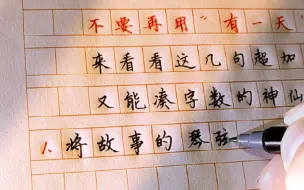 不要再用"有一天
来看看这几句超加
又能凑字数的神仙
1.将故事的琴弦